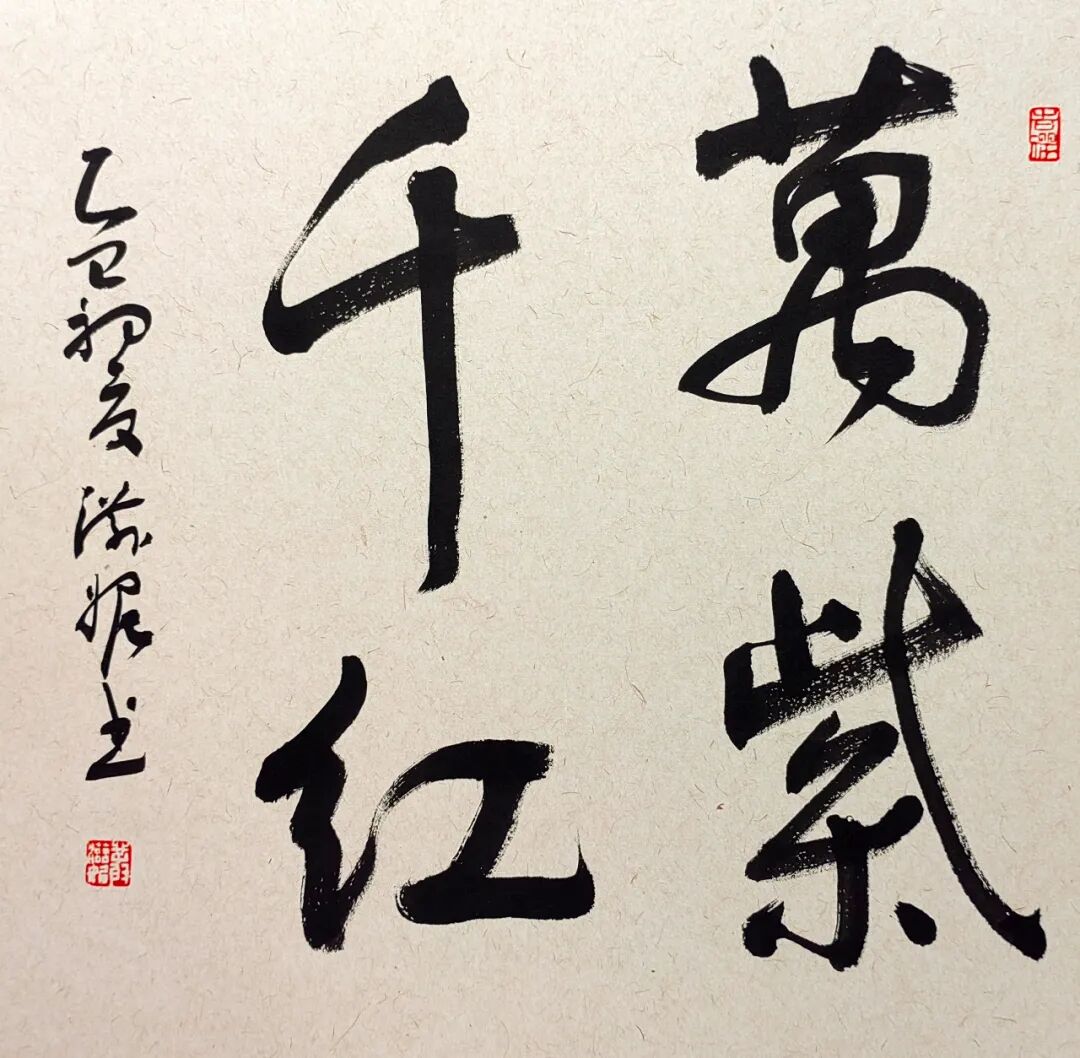 萬紫
千红
乙巳初夏 书